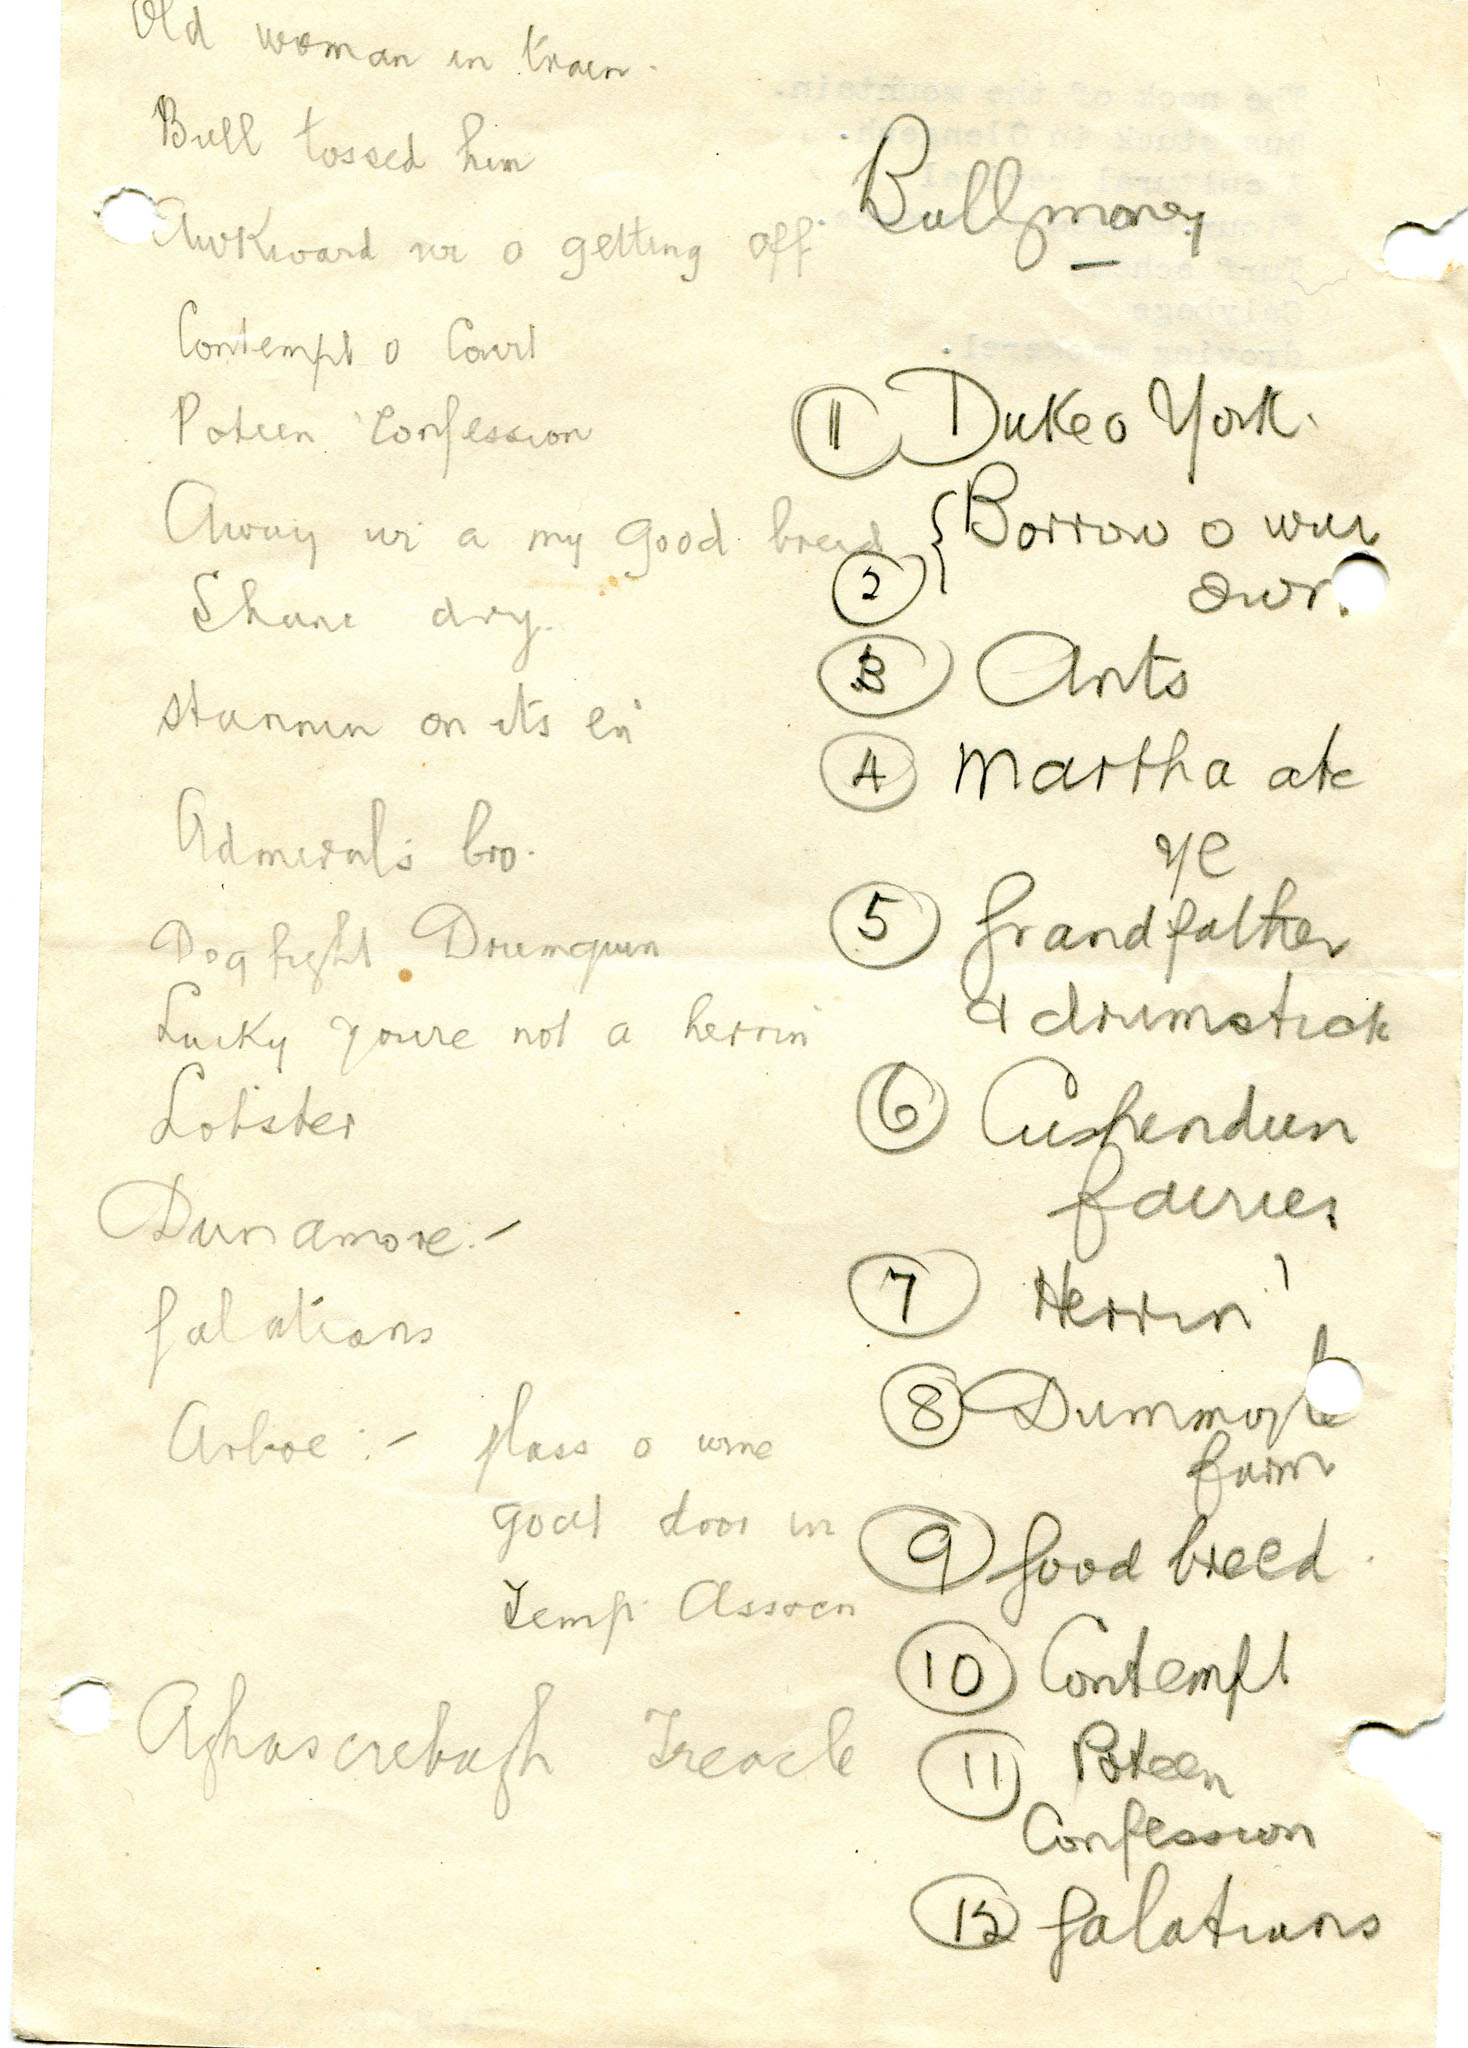 Old woman in train.
Bull tossed him
Awkward wi o getting off
Contempt o Court
Poteen Confession
Away wi a my good breed
Shane dry.
stannin on its en'
Admiral's bro.
Dog fight Drumquin
Lucky youre not a herrin'
Lobster
Dunamore :-
Galatians
Arboe :- glass o wine
goat door in
Temp. Assocn
Aghascrebagh Treacle
Ballymoney
1 Duke o York.
2 { Borrow o wur
3 Ants
4 Martha ate
ye
5 Grandfather
& drumstick
6 Cushendun
fairies
7 Herrin'
8
farm
9 Good breed.
10 Contempt
11 Poteen
Confession
12 Galatians
The neck of the mountain.
Bus stuck in
Turf